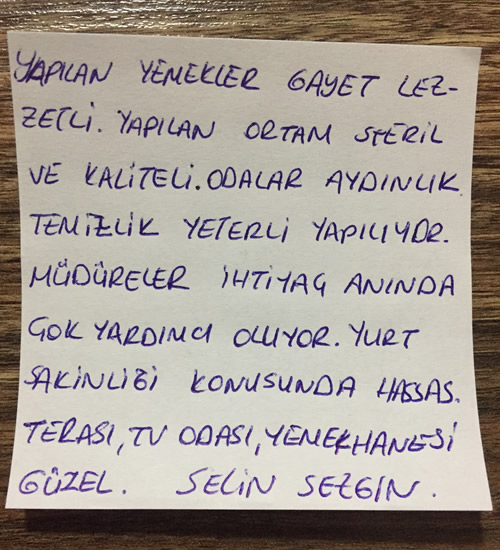 YAPILAN YEMEKLER GAYET LEZ-
ZETLİ. YAPILAN ORTAM STERİL
VE KALİTELİ. ODALAR AYDINLIK.
TEMİZLİK YETERLİ YAPILIYOR.
MÜDÜRELER İHTİYAÇ ANINDA
ÇOK YARDIMCI OLUYOR. YURT
SAKİNLİĞİ KONUSUNDA HASSAS.
TERASI, TV ODASI, YEMEKHANESİ
GÜZEL. SELİN SEZGİN.